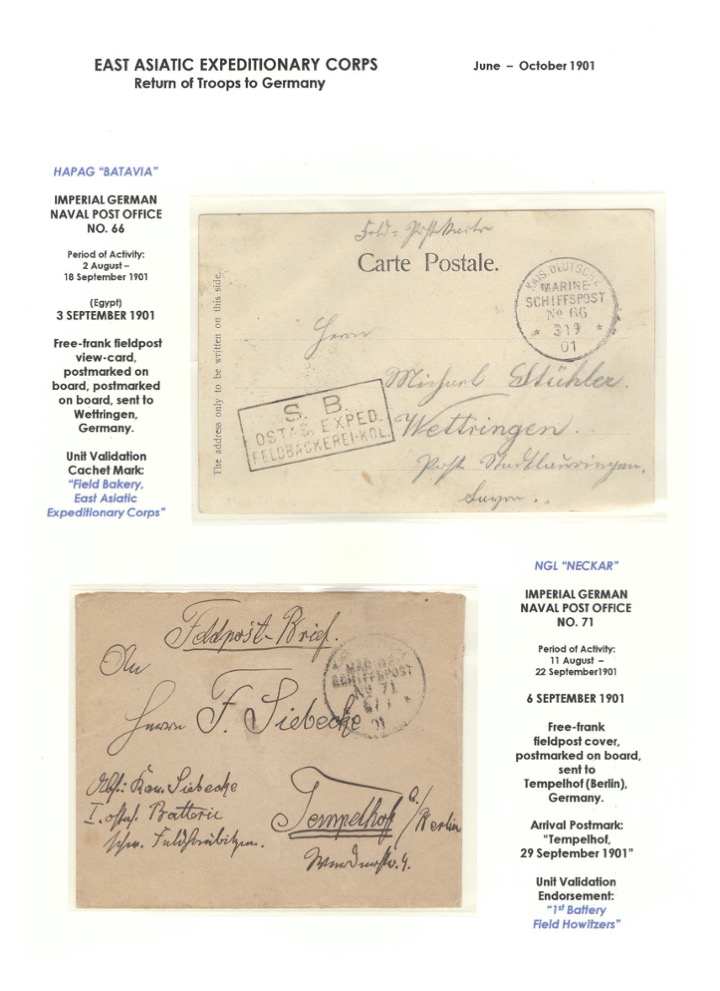 EAST ASIATIC EXPEDITIONARY CORPS
Return of Troops to Germany
June – October 1901
HAPAG "BATAVIA"
IMPERIAL GERMAN
NAVAL POST OFFICE
NO. 66
Period of Activity:
2 August –
18 September 1901
(Egypt)
3 SEPTEMBER 1901
Free-frank fieldpost
view-card,
postmarked on
board, postmarked
on board, sent to
Wettringen,
Germany.
Unit Validation
Cachet Mark:
"Field Bakery,
East Asiatic
Expeditionary Corps"
Feld=Postkarte
Carte Postale.
The address only to be written on this side.
KAIS. DEUTSCHE
MARINE-
SCHIFFSPOST
No 66
* 3/9 *
01
Herrn
Michael Stühler.
Wettringen.
Post Stadtlauringen,
Bayern..
S. B.
OSTAS. EXPED.
FELDBÄCKEREI-KOL.
NGL "NECKAR"
IMPERIAL GERMAN
NAVAL POST OFFICE
NO. 71
Period of Activity:
11 August –
22 September1901
6 SEPTEMBER 1901
Free-frank
fieldpost cover,
postmarked on board,
sent to
Tempelhof (Berlin),
Germany.
Arrival Postmark:
"Tempelhof,
29 September 1901"
Unit Validation
Endorsement:
"1st Battery
Field Howitzers"
Feldpost-Brief.
MARINE-
SCHIFFSPOST
No 71
6/9 *
01
An
Herrn F. Siebecke
Abs.: Kan. Siebecke
I. ostas. Batterie
schw. Feldhaubitzen.
Tempelhof b./Berlin